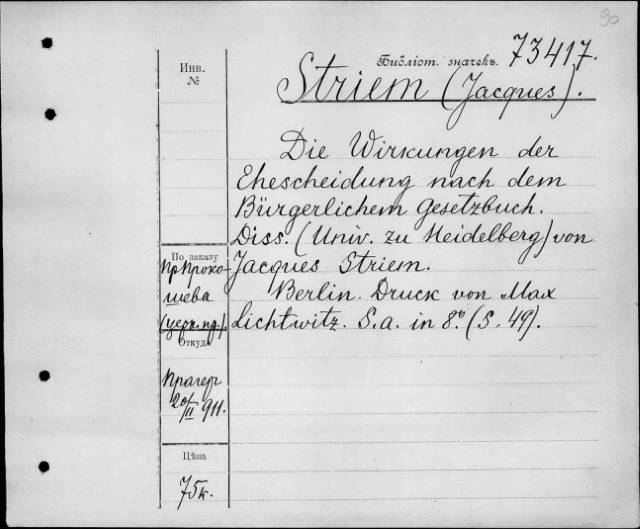 90
Инв.
№
Библіот. значекъ. 73417.
Striem (Jacques).
Die Wirkungen der
Ehescheidung nach dem
Bürgerlichem Gesetzbuch.
Diss. (Univ. zu Heidelberg) von
Jacques Striem.
Berlin. Druck von Max
Lichtwitz. S. a. in 8º. (S. 49).
По заказу
Пр. Проко-
шева
(церк. пр.).
Откуда
Прагер
20/II 911.
Цѣна
75к.